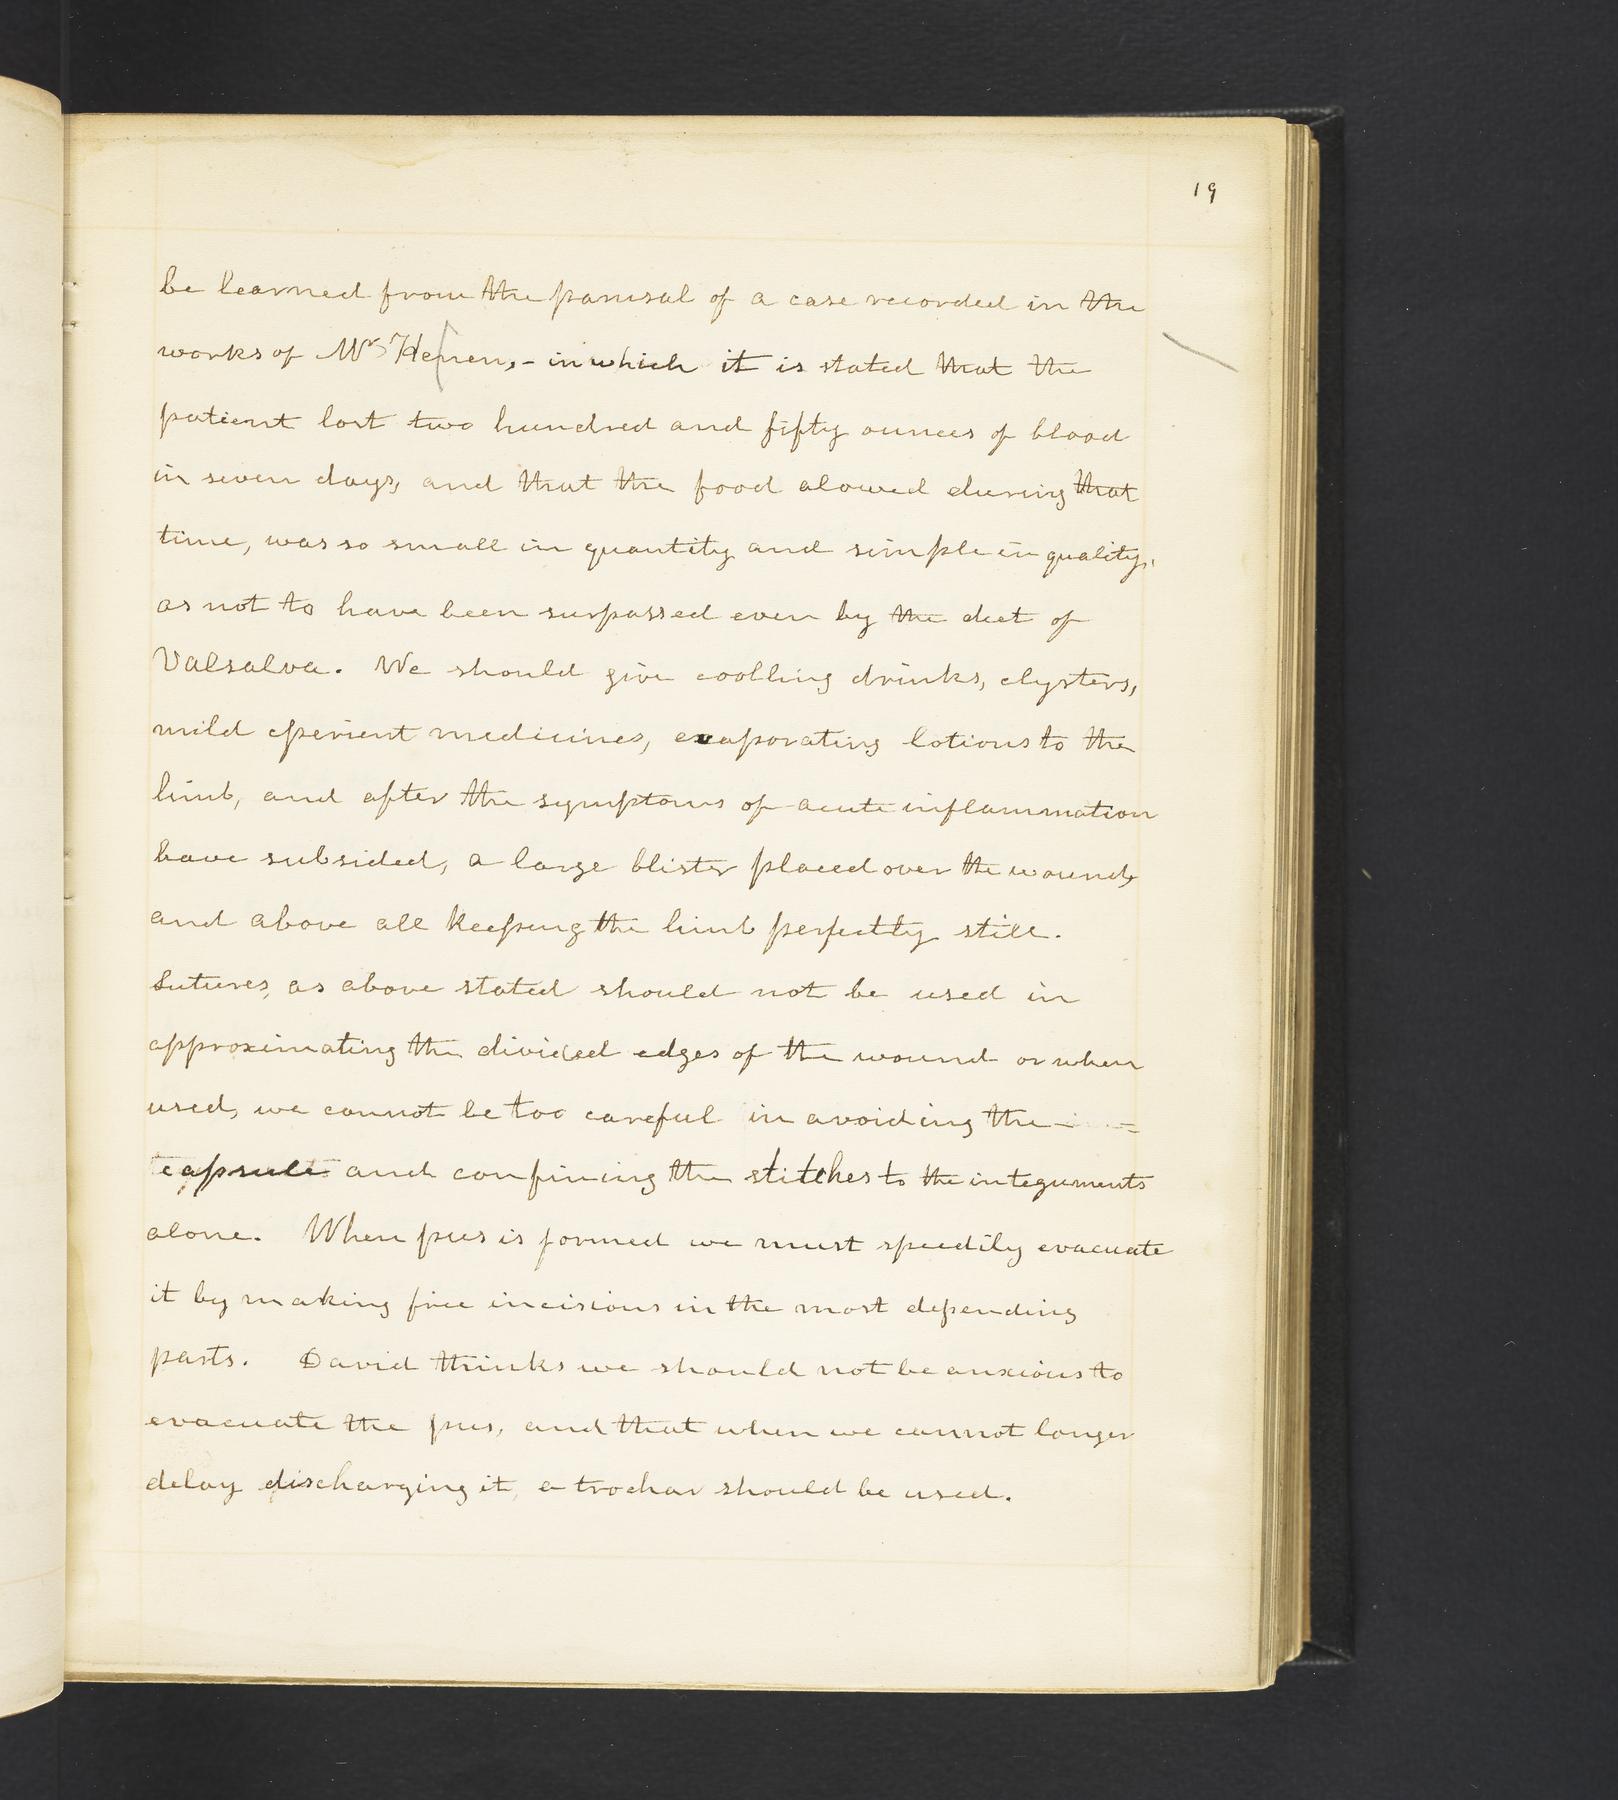 19
be learned from the parusal of a case recorded in the
works of Mr Henen,- in which it is stated that the
patient lost two hundred and fifty ounces of blood
in seven days, and that the food alowed during that
time, was so small in quantity and simple in quality,
as not to have been surpassed even by the diet of
Valsalva. We should give coolling drinks, clysters,
mild eperient medicines, evaporating lotions to the
limb, and after the symptoms of acute inflammation
have subsided, a large blister placed over the wound,
and above all keeping the limb perfectly still.
Sutures, as above stated should not be used in
approximating the divided edges of the wound or when
used, we cannot be too careful in avoiding the
capsule and confining the stitches to the integuments
alone. When pus is formed we must speedily evacuate
it by making free incisions in the most depending
parts. David thinks we should not be anxious to
evacuate the pus, and that when we cannot longer
delay discharging it, a trochar should be used.